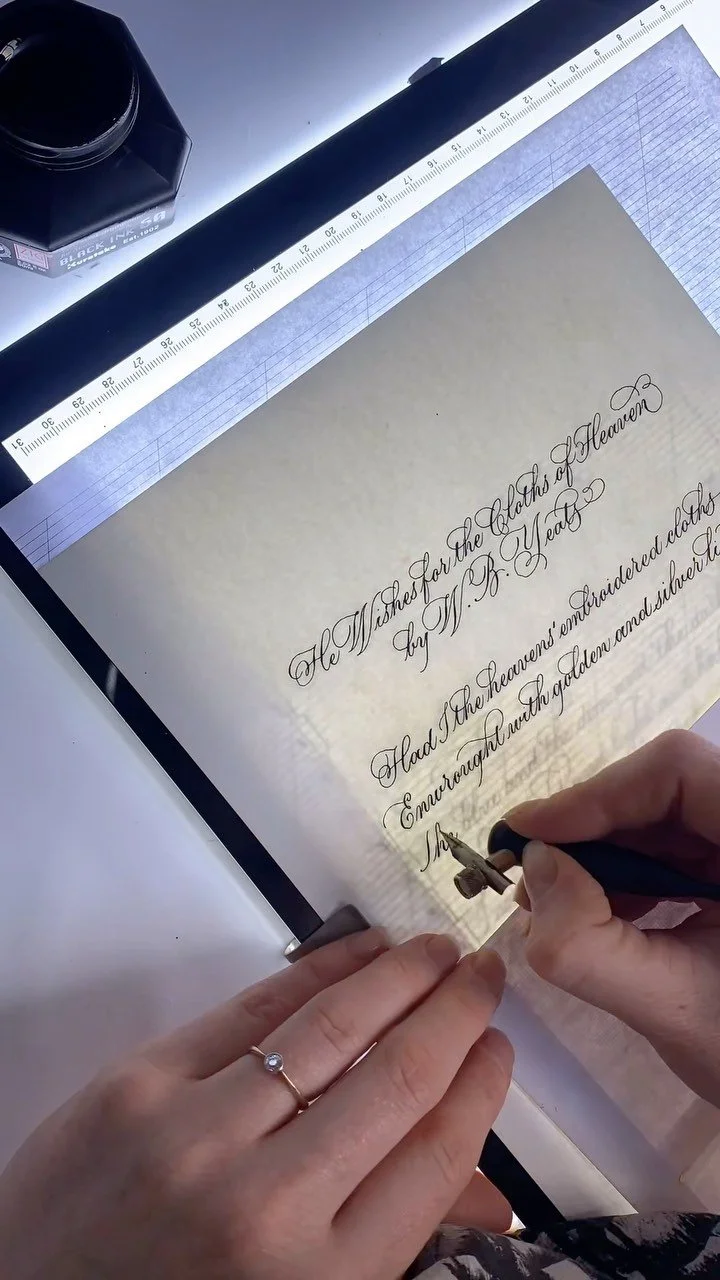 BLACK INK 60
Kuretake Est.1902
31 30 29 28 27 26 25 24 23 22 21 20 19 18 17 16 15 14 13 12 11 10 9 8 7 6
He Wishes for the Cloths of Heaven
by W. B. Yeats
Had I the heavens' embroidered cloths
Enwrought with golden and silver li
The